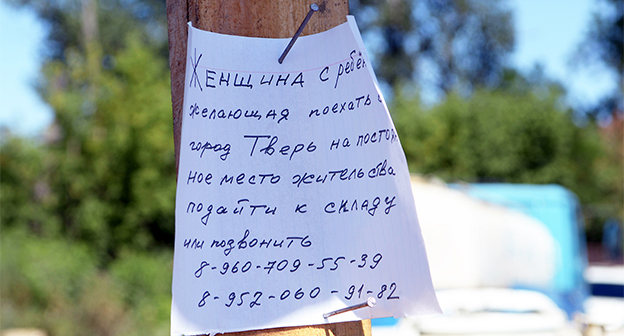 Женщина с ребён
желающая поехать в
город Тверь на постоян
ное место жительства
подайти к складу
или позвонить
8-960-709-55-39
8-952-060-91-82